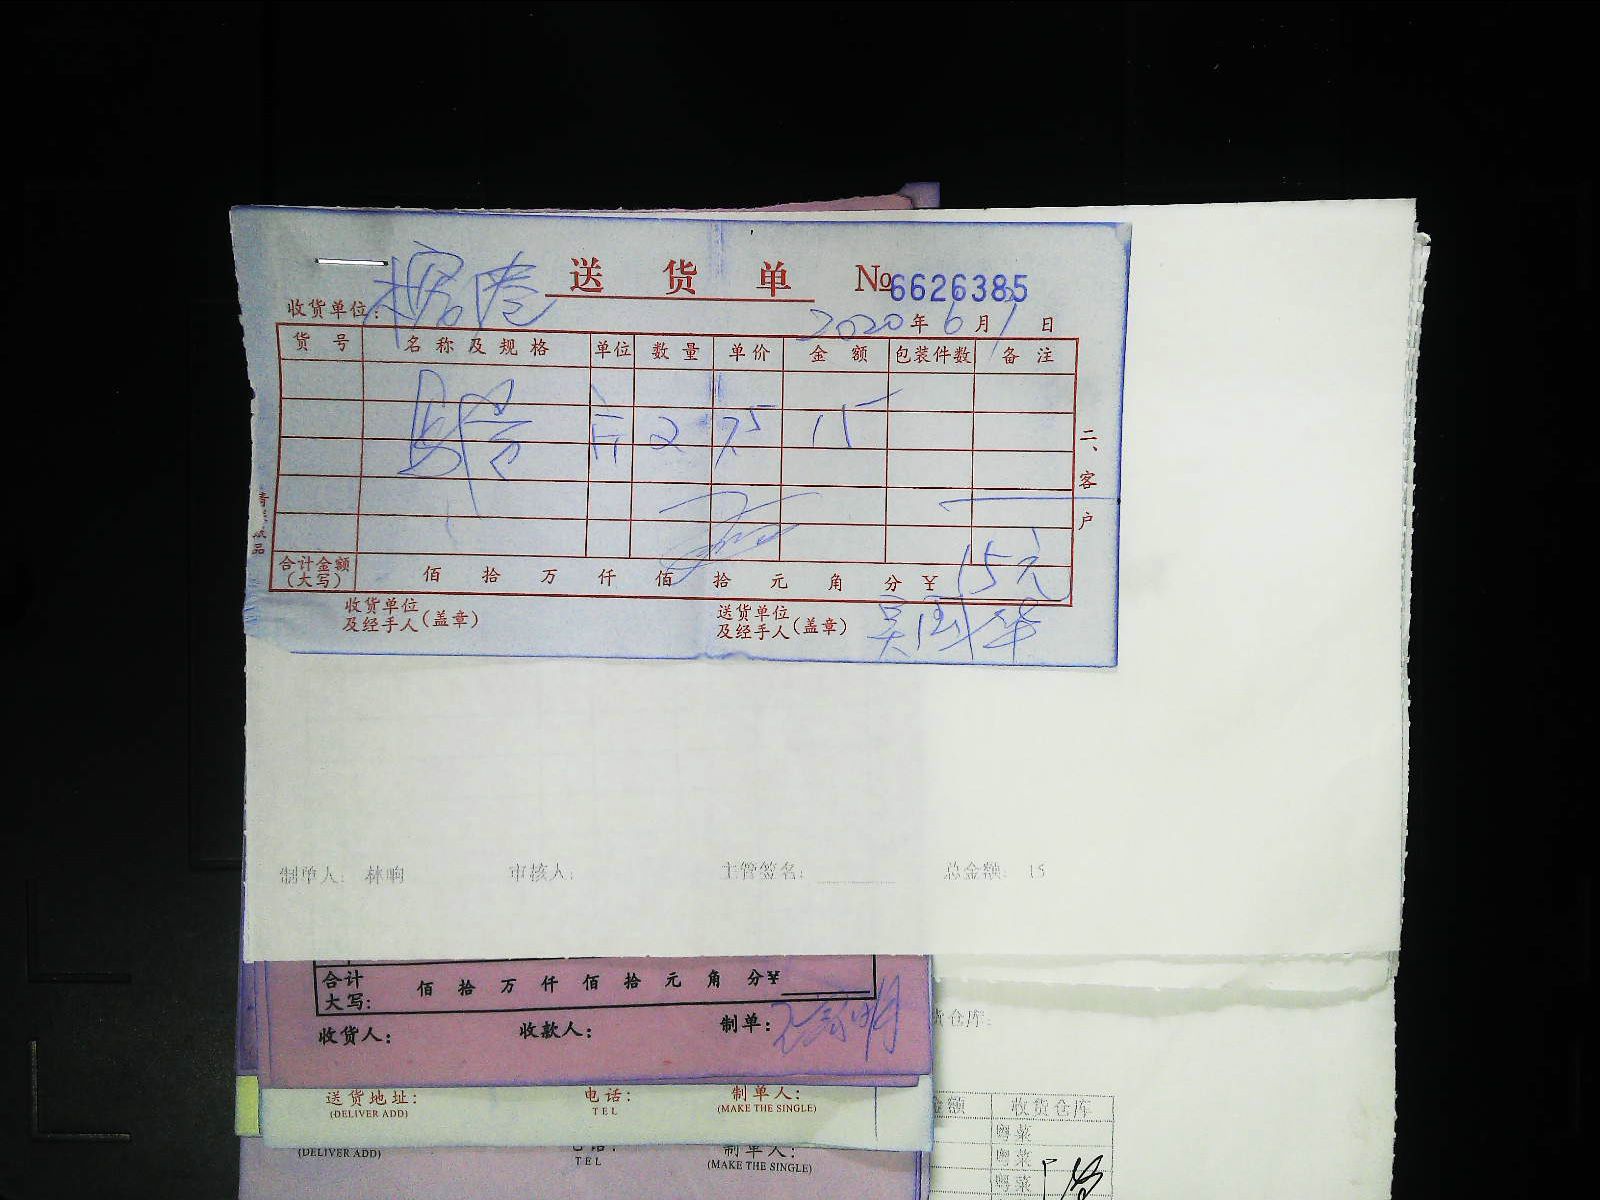 送货单 №6626385
收货单位:
2020年6月1日
货号 名称及规格 单位 数量 单价 金额 包装件数 备注
斤 2 7.5 15
二、客户
合计金额(大写) 佰 拾 万 仟 佰 拾 元 角 分 ¥ 15元
收货单位及经手人(盖章) 送货单位及经手人(盖章) 吴国华
制单人: 林响 审核人: 主管签名: 总金额: 15
合计大写: 佰 拾 万 仟 佰 拾 元 角 分¥
收货人: 收款人: 制单:
货仓库:
送货地址: 电话: 制单人:
(DELIVER ADD) TEL (MAKE THE SINGLE)
金额 收货仓库
粤菜
电话: 制单人:
(DELIVER ADD) TEL (MAKE THE SINGLE)
粤菜
粤菜